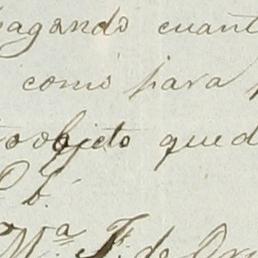 pagando cuant
como para
objeto qued
Mª F. de